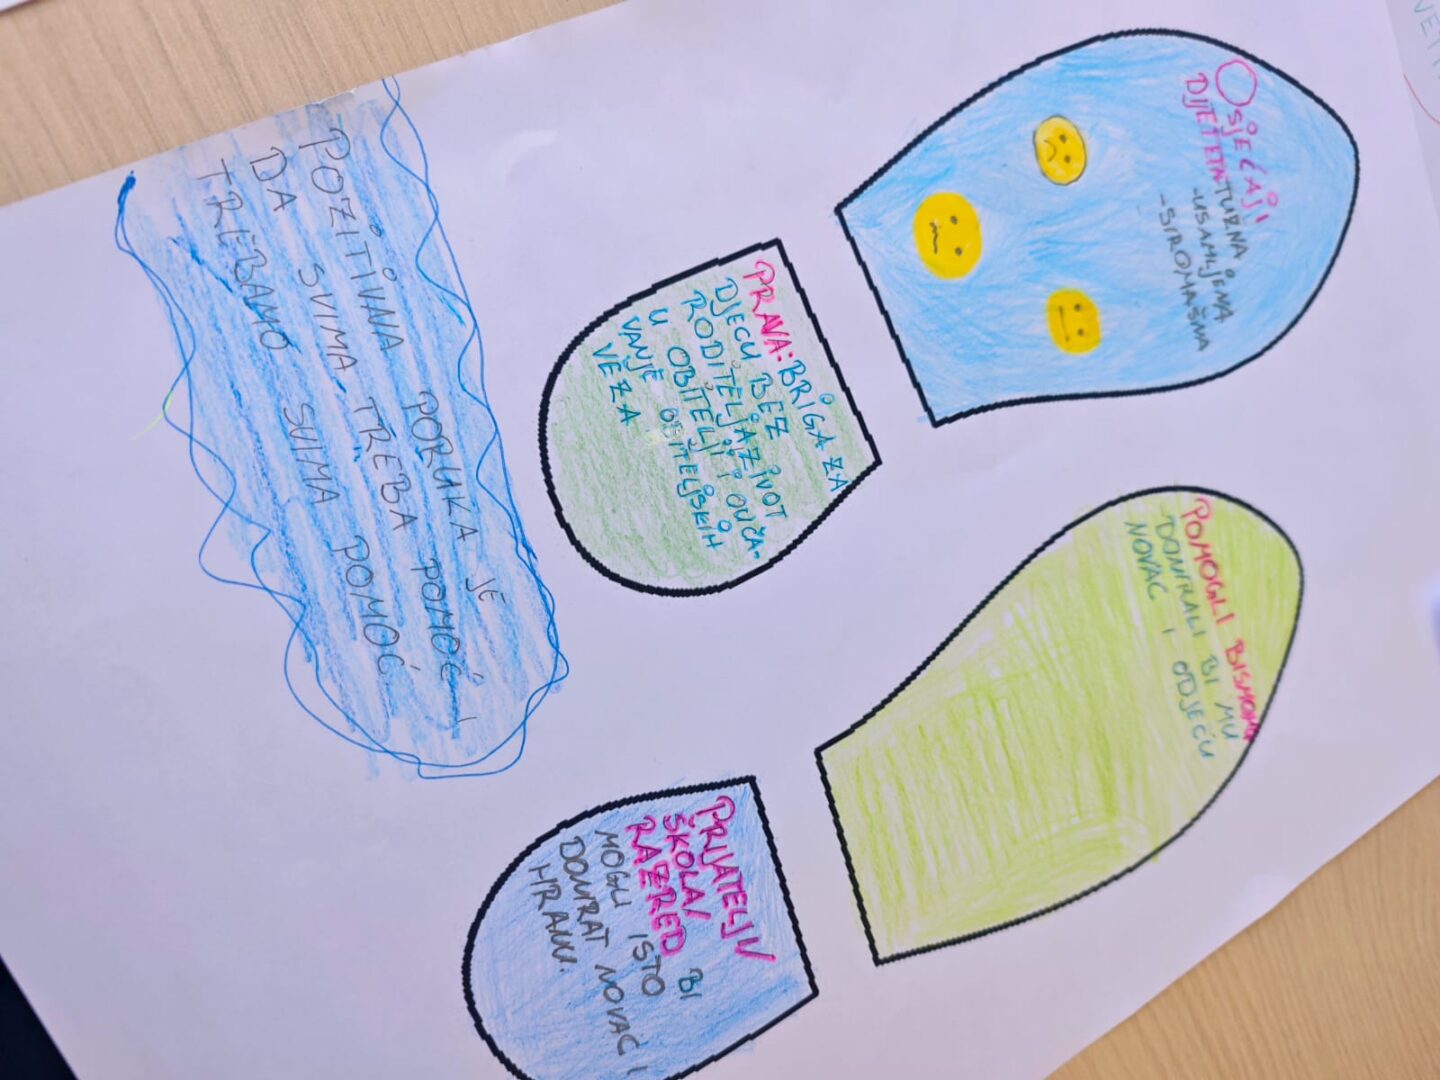 OSJEĆAJI
DJETETA: TUŽNA
-USAMLJENA
-SIROMAŠNA
POMOGLI BISMOMU
DONIRALI BI MU
NOVAC I ODJEĆU
PRAVA: BRIGA ZA
DJECU BEZ
RODITELJA ŽIVOT
U OBITELJI I OUČA-
VANJE OBITELJSKIH
VEZA
PRIJATELJI/
ŠKOLA/
RAZRED BI
MOGLI ISTO
DONIRAT NOVAC I
HRANU.
POZITIVNA PORUKA JE
DA SVIMA TREBA POMOĆ I
TREBAMO SVIMA POMOĆ.